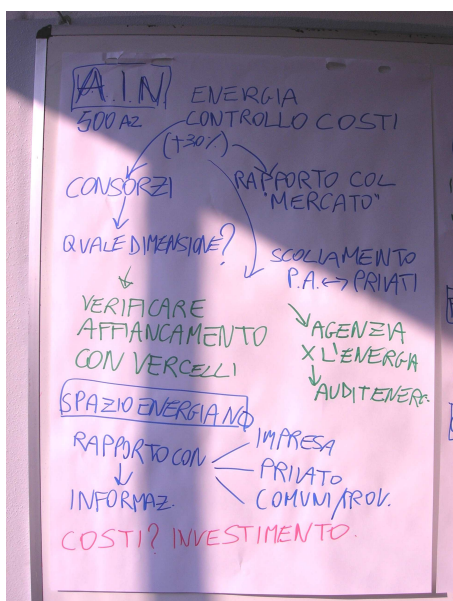 A.I.N
ENERGIA
500 AZ
CONTROLLO COSTI
(+30%)
CONSORZI
RAPPORTO COL
"MERCATO"
QUALE DIMENSIONE?
SCOLLAMENTO
P.A. ↔ PRIVATI
VERIFICARE
AFFIANCAMENTO
CON VERCELLI
AGENZIA
X L'ENERGIA
AUDIT ENERG.
SPAZIO ENERGIA NO
RAPPORTO CON
IMPRESA
PRIVATO
COMUNI/PROV.
INFORMAZ.
COSTI? INVESTIMENTO.